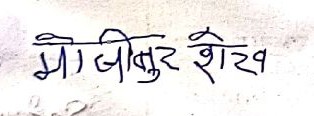 मोजीबुर शेख